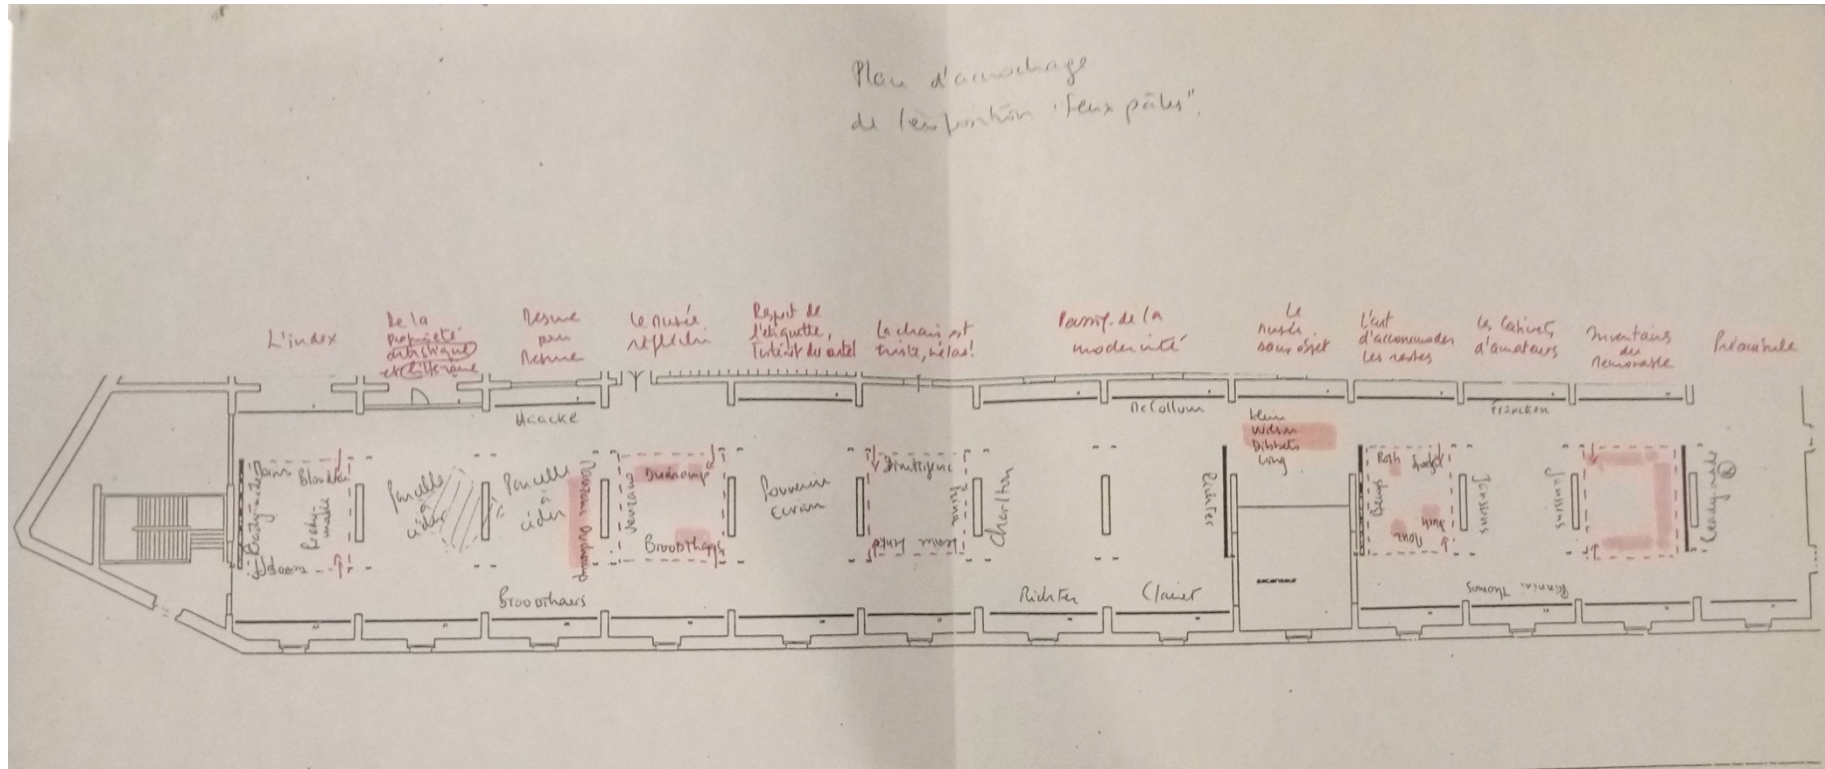 Plan d'accrochage
de l'exposition "Feux pâles".
L'index
De la
propriété
artistique
et littéraire
Mesure
pour
Mesure
Le musée
réfléchi
Respect de
l'étiquette,
Intérêt du cartel
La chair est
triste, hélas!
Passif de la
modernité
Le
musée
sans objet
L'art
d'accommoder
les restes
Les Cabinets
d'amateurs
Inventaire
du
Mémorable
Préambule
Haacke
McCollum
Francken
Wilson
Dibbets
Long
Blanckart
Ready-made
Parcelle
à céder
Parcelle
à céder
Duchamp
Broodthaers
Pouvoir
écran
Dimitrijevic
Prina
Charlton
Richter
Roth
Janssens
Janssens
Ready-made
Broodthaers
Richter
Claret
Thomas